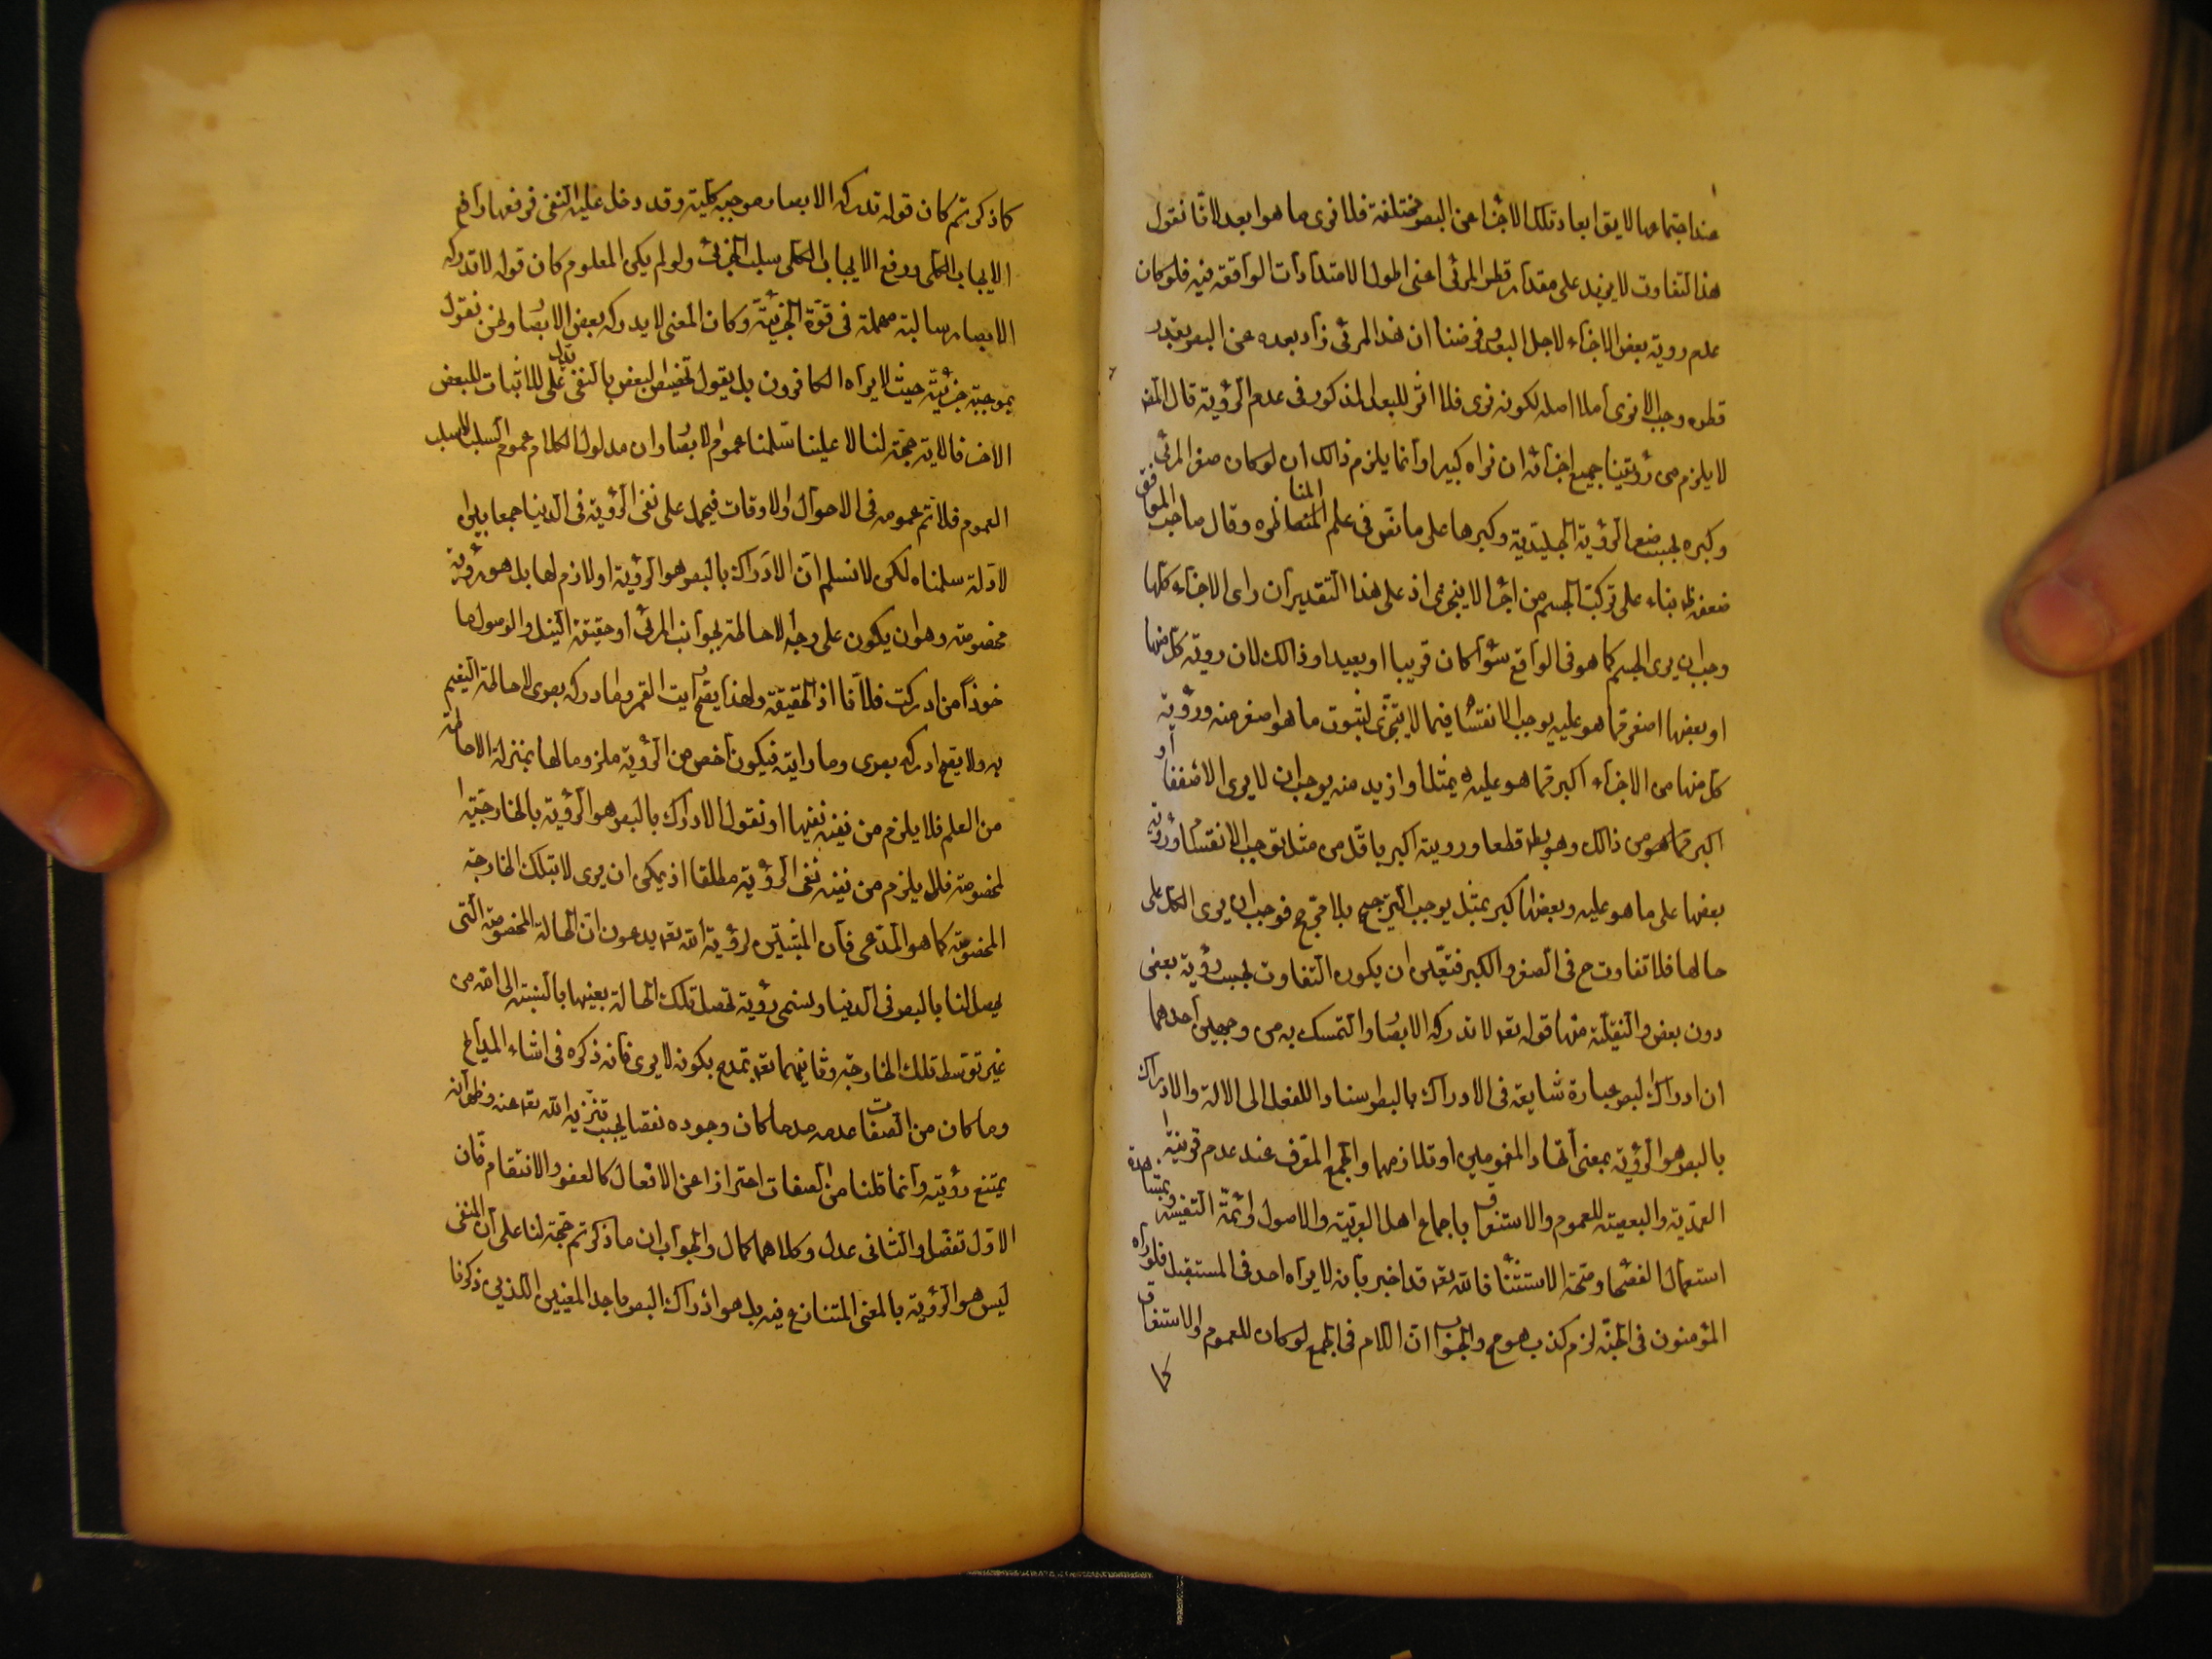 عند اجتماعها لا يق ابعاد تلك الاجزاء عن البصر مختلفة فلا نرى ما هو ابعد لانا نقول
هذا التفاوت لا يزيد على مقدار قطر المرئى اعنى اطول الامتدادات الواقعة فيه فلو كان
عدم روية بعض الاجزاء لاجل البعد وفرضنا ان هذا المرئى زاد بعده عن البصر بقدر
قطره وجب الا نرى املا اصله لكونه نرى فلا اثر للبعد المذكور فى عدم الرؤية قال المص
لا يلزم من رؤيتنا جميع اجزائه ان نراه كبيرا وانما يلزم ذالك ان لو كان صغر المرئى
وكبره بحسب صغر الرؤية الجليدية وكبرها على ما نص فى علم المناظره وقال صاحب المواقف
ضعفه ظ بناء على تركب الجسم من اجزا لا يتجزى اذ على هذا التقدير ان راى الاجزاء كلها
وجب ان يرى الجسم كما هو فى الواقع سواء كان قريبا او بعيدا وذالك لان روية كل منها
او بعضها اصغر مما هو عليه يوجب الانقسام فيما لا يتجزى لثبوت ما هو اصغر منه ورؤية
كل منها من الاجزاء اكبر مما هو عليه بمثل او ازيد منه يوجب ان لا يرى الا ضعفا او
اكبر مما هو من ذالك وهو بط قطعا وروية اكبر باقل من مثل توجب الانقسام ورؤية
بعضها على ما هو عليه وبعضها اكبر بمثل يوجب الترجيح بلا مرجح فوجب ان يرى الكل على
حالها فلا تفاوت ح فى الصغر والكبر فتعين ان يكون التفاوت بحسب رؤية بعض
دون بعض والنقلية منها قوله تعه لا تدركه الابصار والتمسك به من وجهين احدهما
ان ادراك البصر عبارة شايعة فى الادراك بالبصر اسناد اللفعل الى الالة والادراك
بالبصر هو الرؤية بمعنى اتحاد المفهومين او تلازمهما والجمع المعرف عند عدم قرينة
العهدية والبعضية للعموم والاستغراق باجماع اهل العربية والاصول وائمة التفسير وبشهادة
استعمال الفصحا وصحة الاستثنا فالله تعه قد اخبر بانه لا يراه احد فى المستقبل فلو راه
المؤمنون فى الجنة لزم كذب هو مح والجواب ان اللام فى الجمع لو كان للعموم والاستغراق
كا
كا ذكرتم كان قوله تدركه الابصار موجبة كلية وقد دخل عليه النفى فرفعها ورفع
الايجاب الكلى ورفع الايجاب الكلى سلب الجزئى ولو لم يكن المعلوم كان قوله لا تدركه
الابصار سالبة مهملة فى قوة الجزئية وكان المعنى لا يدركه بعض الابصار ونحن نقول
بموجبة جزئية حيث لا يراه الكافرون بل يقول تخصيص البعض بالنفى يدل على الاثبات للبعض
الاخر فالاية حجة لنا لا علينا سلمنا عموم الابصار وان مدلول الكلام عموم السلب لا سلب
العموم فلا تم عمومه فى الاحوال والاوقات فيحمل على نفى الرؤية فى الدنيا جمعا بين
الادلة سلمناه لكن لا نسلم ان الادراك بالبصر هو الرؤية او لازم لها بل هو رؤية
مخصوصة وهو ان يكون على وجه الاحاطة بجوانب المرئى او حقيقة النيل والوصول ما
خوذا من ادركت فلانا اذ لحقيقة ولهذا يصح رايت القمر وما ادركه بصرى لاحاطة الغيم
به ولا يصح ادركه بصرى وما رايته فيكون اخص من الرؤية ملزوما لها بمنزلة الاحاطة
من العلم فلا يلزم من نفيه نفيها او نقول الادراك بالبصر هو الرؤية بالخارجية
لمخصوصة فلا يلزم من نفيه نفى الرؤية مطلقا اذ يمكن ان يرى لا بتلك الخارجة
المخصوصة كما هو المدعى فان المثبتين لرؤية الله تعه يدعون ان الحالة المخصوصة التى
يحصل لنا بالبصر فى الدنيا وتسمى رؤية تحصل تلك الحالة بعينها بالنسبة الى الله من
غير توسط تلك الخارجة وثانيهما تعه تمدح بكونه لا يرى فانه ذكره فى اثناء المدايح
وما كان من الصفات عدمه مدحا كان وجوده نقصا يجب تنزيه الله تعه عنه وظهر انه
يمتنع رؤيته وانما قلنا من الصفات احترازا عن الافعال كالعفو والانتقام فان
الاول تفضل والثانى عدل وكلاهما كمال والجواب ان ما ذكرتم حجة لنا على ان المنفى
ليس هو الرؤية بالمعنى المتنازع فيه بل هو ادراك البصر باحد المعنيين اللذين ذكرنا